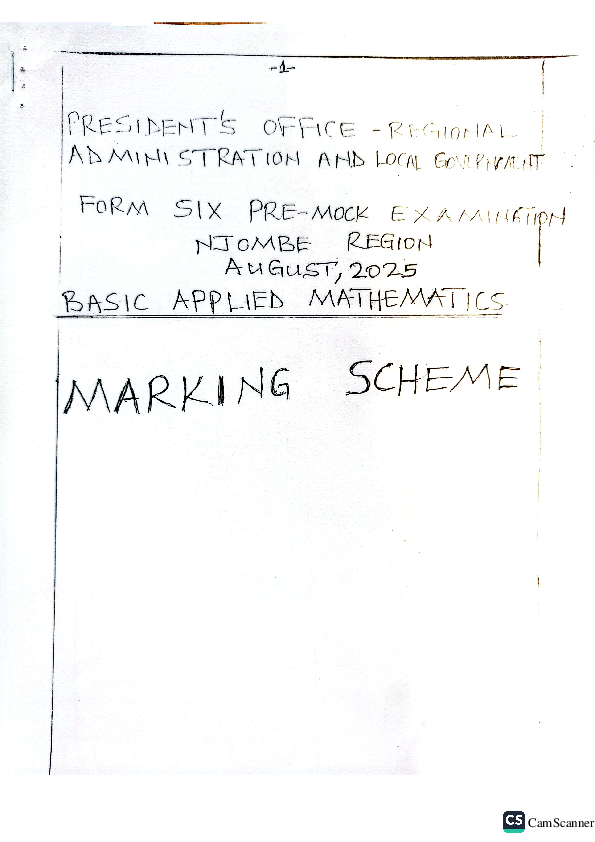 -1-
PRESIDENT'S OFFICE - REGIONAL
ADMINISTRATION AND LOCAL GOVERNMENT
FORM SIX PRE-MOCK EXAMINATION
NJOMBE REGION
AUGUST, 2025
BASIC APPLIED MATHEMATICS
MARKING SCHEME
CS CamScanner